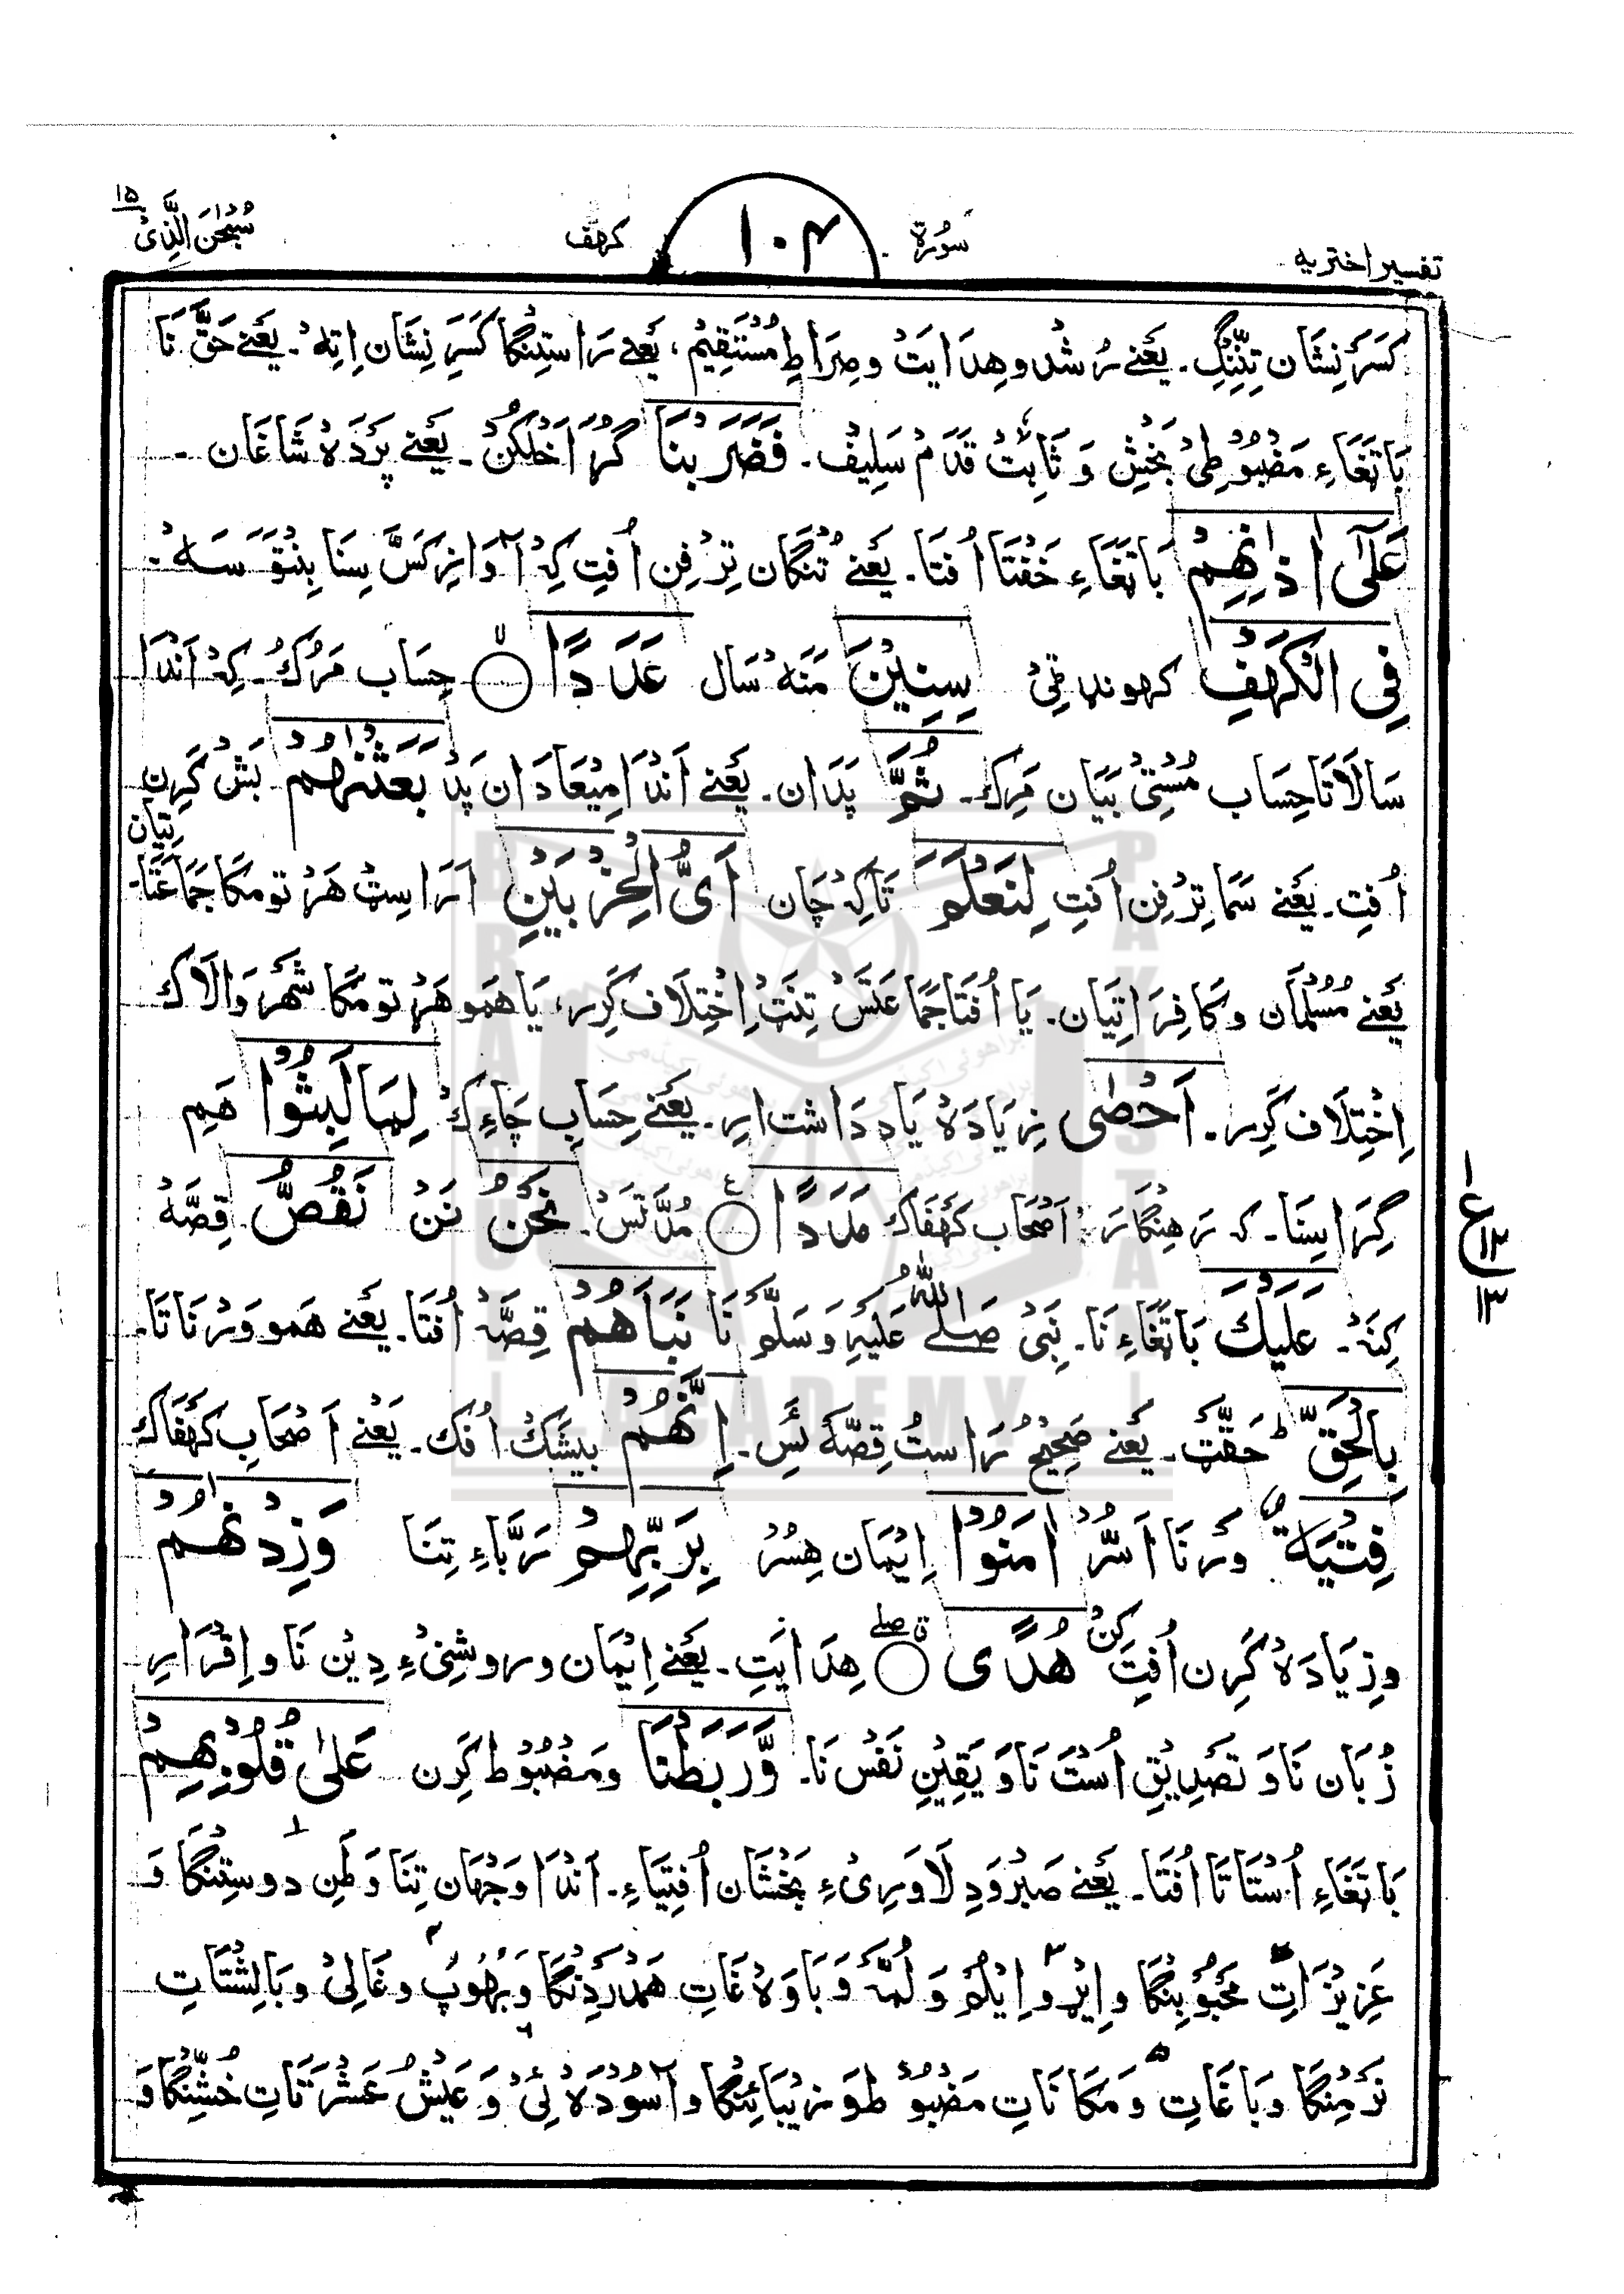 تفسیر اختریه
سُوْرَةُ
۱۰۴
کهف
سُبْحٰنَ الَّذِیْ
۱۵
كَسَرَ نِشَان تِنِّنگِ۔ یَعْنے رُشْد وهِدَایَتْ و صِرَاطِ مُسْتَقِیْم، یَعْنے رَاسْتِیْنگا كَسَرِ نِشَان اِتِهْ۔ یَعْنے حَقَّ نَا
بَاتغَاءِ مَضْبُوْطِیْ بَخْش وَ ثَابِتْ قَدَمْ سَلِیْفْ۔ فَضَرَبْنَا كَرْ اَخَلْكُنْ۔ یَعْنے پَرْدَهْ شَاغَان۔
عَلٰٓی اٰذَانِهِمْ بَاتَغَاءِ خَفْتَا اُفْتَا۔ یَعْنے تُنْگان تِرْفِن اُفْتِ كِهْ آوَازِ كَسَّ سِنَا بِنْنُوْ سَهْ۔
فِی الْكَهْفِ كهوند ٹِیْ سِنِیْنَ مَنَهْ سَال عَدَدًا ۝ حِسَاب مَرُكْ۔ كِهْ اَنْدَا
سَالَاتَا حِسَاب مُسْتِیْ بَیَان مَرِكْ۔ ثُمَّ پَدَان۔ یَعْنے اَنْدَا مِیْعَادَان پَدْ بَعَثْنٰهُمْ بَشْ كَرِن
اُفْتِ۔ یَعْنے سَمَا تِرْفِن اُفْتِ لِنَعْلَمَ تَاكِهْ چَان اَیُّ الْحِزْبَیْنِ اَرَاسِٹْ هَرْتومكا جَمَاعَتَا۔
تِیَان
یَعْنے مُسُلْمَان وكَافِرَاتِیَان۔ یَا اُفْتَا جَمَاعَتَسْ تِنَتْ اِخْتِلَاف كَرِر، یَا هَمو هَرْتومَكا شَهْرَوَالَاك
اِخْتِلَاف كَرِر۔ اَحْصٰی زِیَادَهْ یَاد دَاشْت اِرِ۔ یَعْنے حِسَابِ چَاءِكْ لِمَا لَبِثُوْٓا هَمِ
گِرَاسِنَا۔ كه رَهِنْگارَ اَصْحَابِ كَهْفَاك اَمَدًا ۝ مُدَّتَسْ۔ نَحْنُ نَنْ نَقُصُّ قِصَّهْ
كِنَهْ۔ عَلَیْكَ بَاتَغَاءِ نَا۔ نَبِیْ صَلَّے اللهُ عَلَیْهِ وَسَلَّمَ نَا نَبَاَهُمْ قِصَّهْ اُفْتَا۔ یَعْنے هَمو وَرْنَاتَا۔
بِالْحَقِّ ط حَقَّتْ۔ یَعْنے صَحِیْح رَاسْتْ قِصَّهْ ئَسِ۔ اِنَّهُمْ بِیْشَكْ اُفْك۔ یَعْنے اَصْحَابِ كَهْفَاك
فِتْیَةٌ وَرْنَا اَسُّرْ اٰمَنُوْا اِیْمَان هِسُرْ بِرَبِّهِمْ رَبَّاءِ تِنَا وَزِدْنٰهُمْ
وزِیَادَهْ كَرِن اُفْتِ كَنْ هُدًی ۝ هِدَایَتِ۔ یَعْنے اِیْمَان وروشنِیْءِ دِیْن نَا و اِقْرَارِ
زُبَان نَا وَ تَصْدِیْقِ اُسْتَ نَا وَ یَقِیْنِ نَفْس نَا۔ وَّرَبَطْنَا ومَضْبُوْط كَرِن عَلٰی قُلُوْبِهِمْ
بَاتَغَاءِ اُسْتَاتَا اُفْتَا۔ یَعْنے صَبْر وَدِلَاوَرِیْءِ بَخْشَان اُفْتِیَاءِ۔ اَنْدَا وَجْهَان تِنَا وَطَنِ دوسْتِنگا وَ
عَزِیْزَاتِ مَحْبُوْبِنْگا و اِیْر و اِیْلُم وَ لُمَّهْ وَ بَاوَهْ غَاتِ هَمْدَرْدِنْگا وَبْهُوْپ و غَالِیْ وبَالِشْتَاتِ
نَرْمِنْگا وبَاغَاتِ و مَكَانَاتِ مَضْبُوْط وَ زِیْبَائِنْگا و آسُوْدَهْ ئِیْ وَ عَیْش عَشْرَتَاتِ خُشِّنْگا وَ